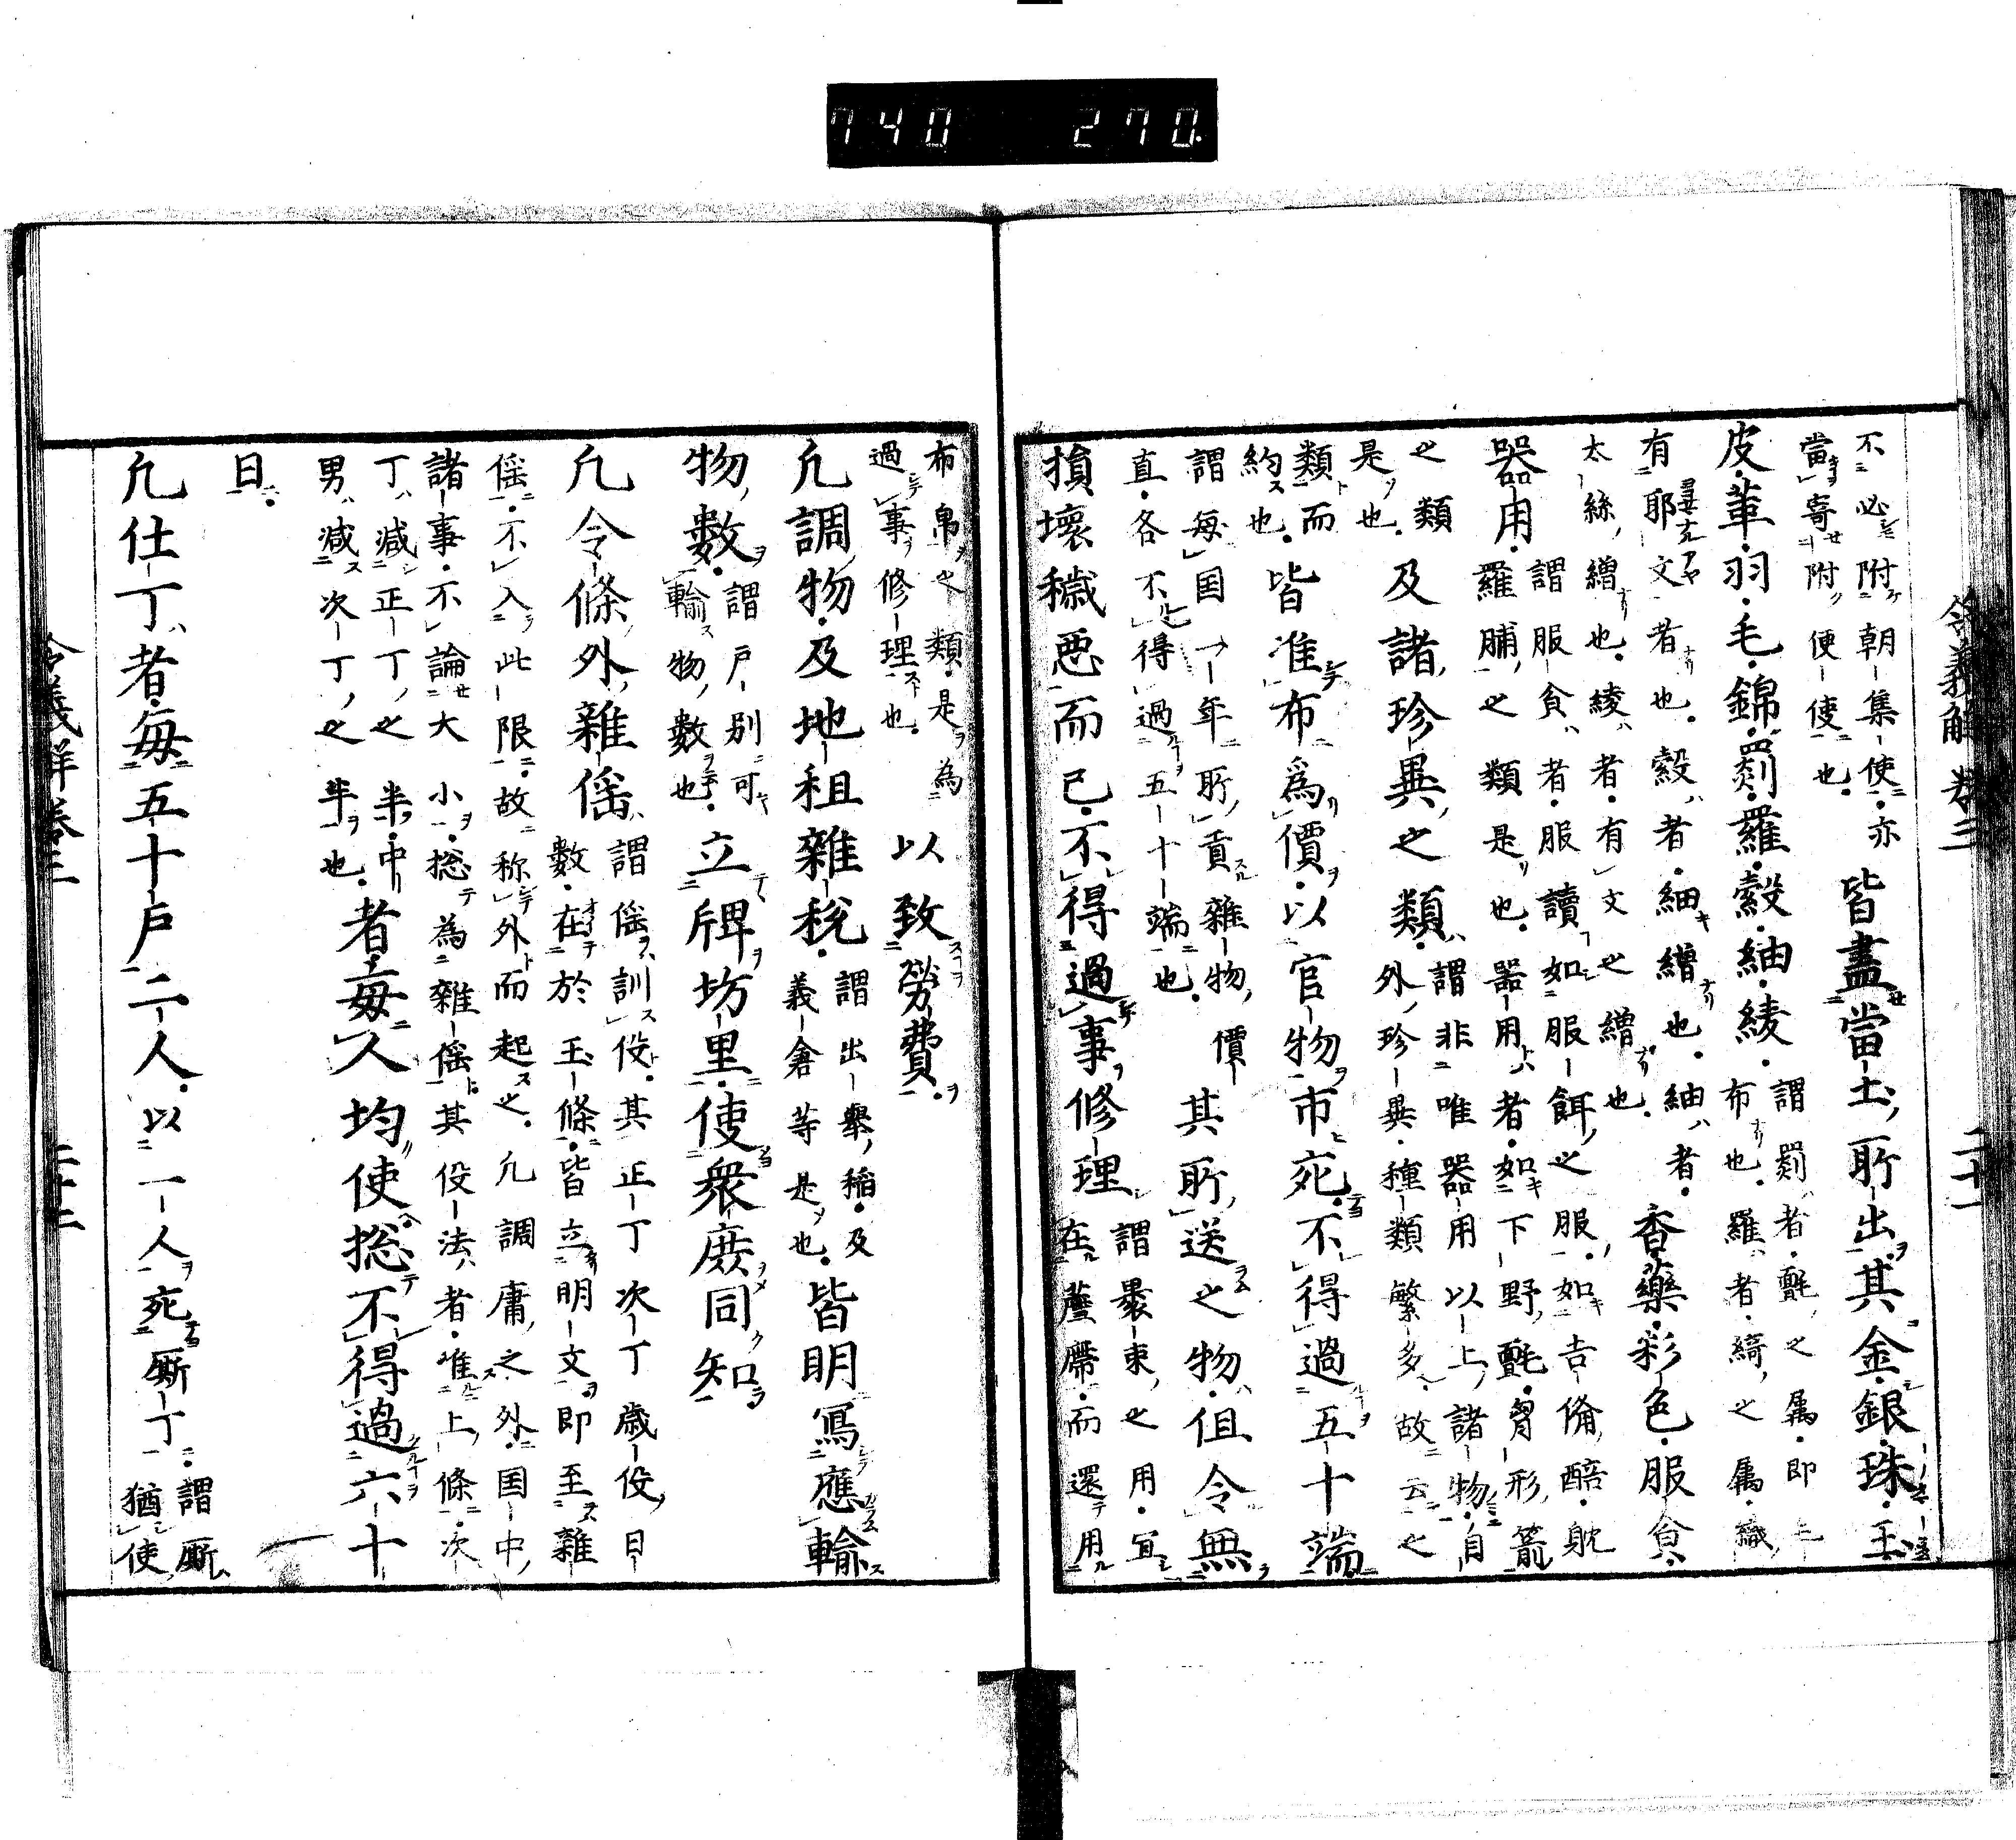 令義解 卷三 二十一
不必附朝集使亦
當寄附便使也
皆盡當土所出其金銀珠玉
皮革羽毛錦罽羅縠紬綾
謂罽者氈之属即毛
布也羅者綺之属織
有耶文者也縠者細繒也紬者
太絲繒也綾者有文之繒也
香藥彩色服食
器用
謂服食者服讀如服餌之服如吉備醅躭
羅脯之類是也器用者如下野氈胷形箭
之類
是也
及諸珍異之類
謂非唯器用以上諸物自
外珍異種類繁多故云之
類而
約也
皆准布爲價以官物市死不得過五十端
謂每国一年所貢雜物價
直各不得過五十端也
其所送之物但令無
損壞穢惡而已不得過事修理
謂褁束之用宜
在而還用
布帛之類是為
過事修理也
以致勞費
凡調物及地租雜税
謂出舉稲及
義倉等是也
皆明寫應輸
物數
謂戸別可
輸物數也
立牌坊里使衆庻同知
凡令條外雜徭
謂徭訓役其正丁次丁歳役日
數在於玉條皆立明文即至雜
徭不入此限故称外而起之凡調庸之外国中
諸事不論大小捴為雜徭其役法者准上條次
丁减正丁之半中
男减次丁之半也
者每人均使捴不得過六十
日
凡仕丁者每五十戸二人以一人死廝丁
謂廝
猶使
令義解卷三 二十二
740 270